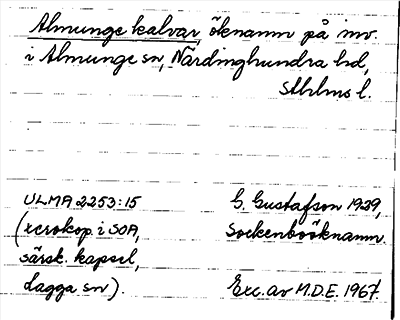 Almunge kalvar, öknamn på inv.
i Almunge sn, Närdinghundra hd,
Sthlms l.
ULMA 2253:15
G. Gustafson 1929,
(xerokop. i SOA,
Sockenboöknamn.
särsk. kapsel,
Lagga sn).
Exc. av M.D.E. 1967.